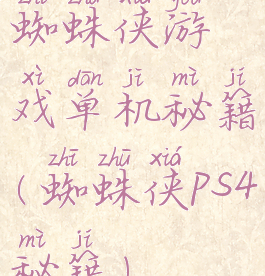 zhī zhū xiá yóu
蜘蛛侠游
xì dān jī mì jí
戏单机秘籍
zhī zhū xiá
(蜘蛛侠PS4
mì jí
秘籍)